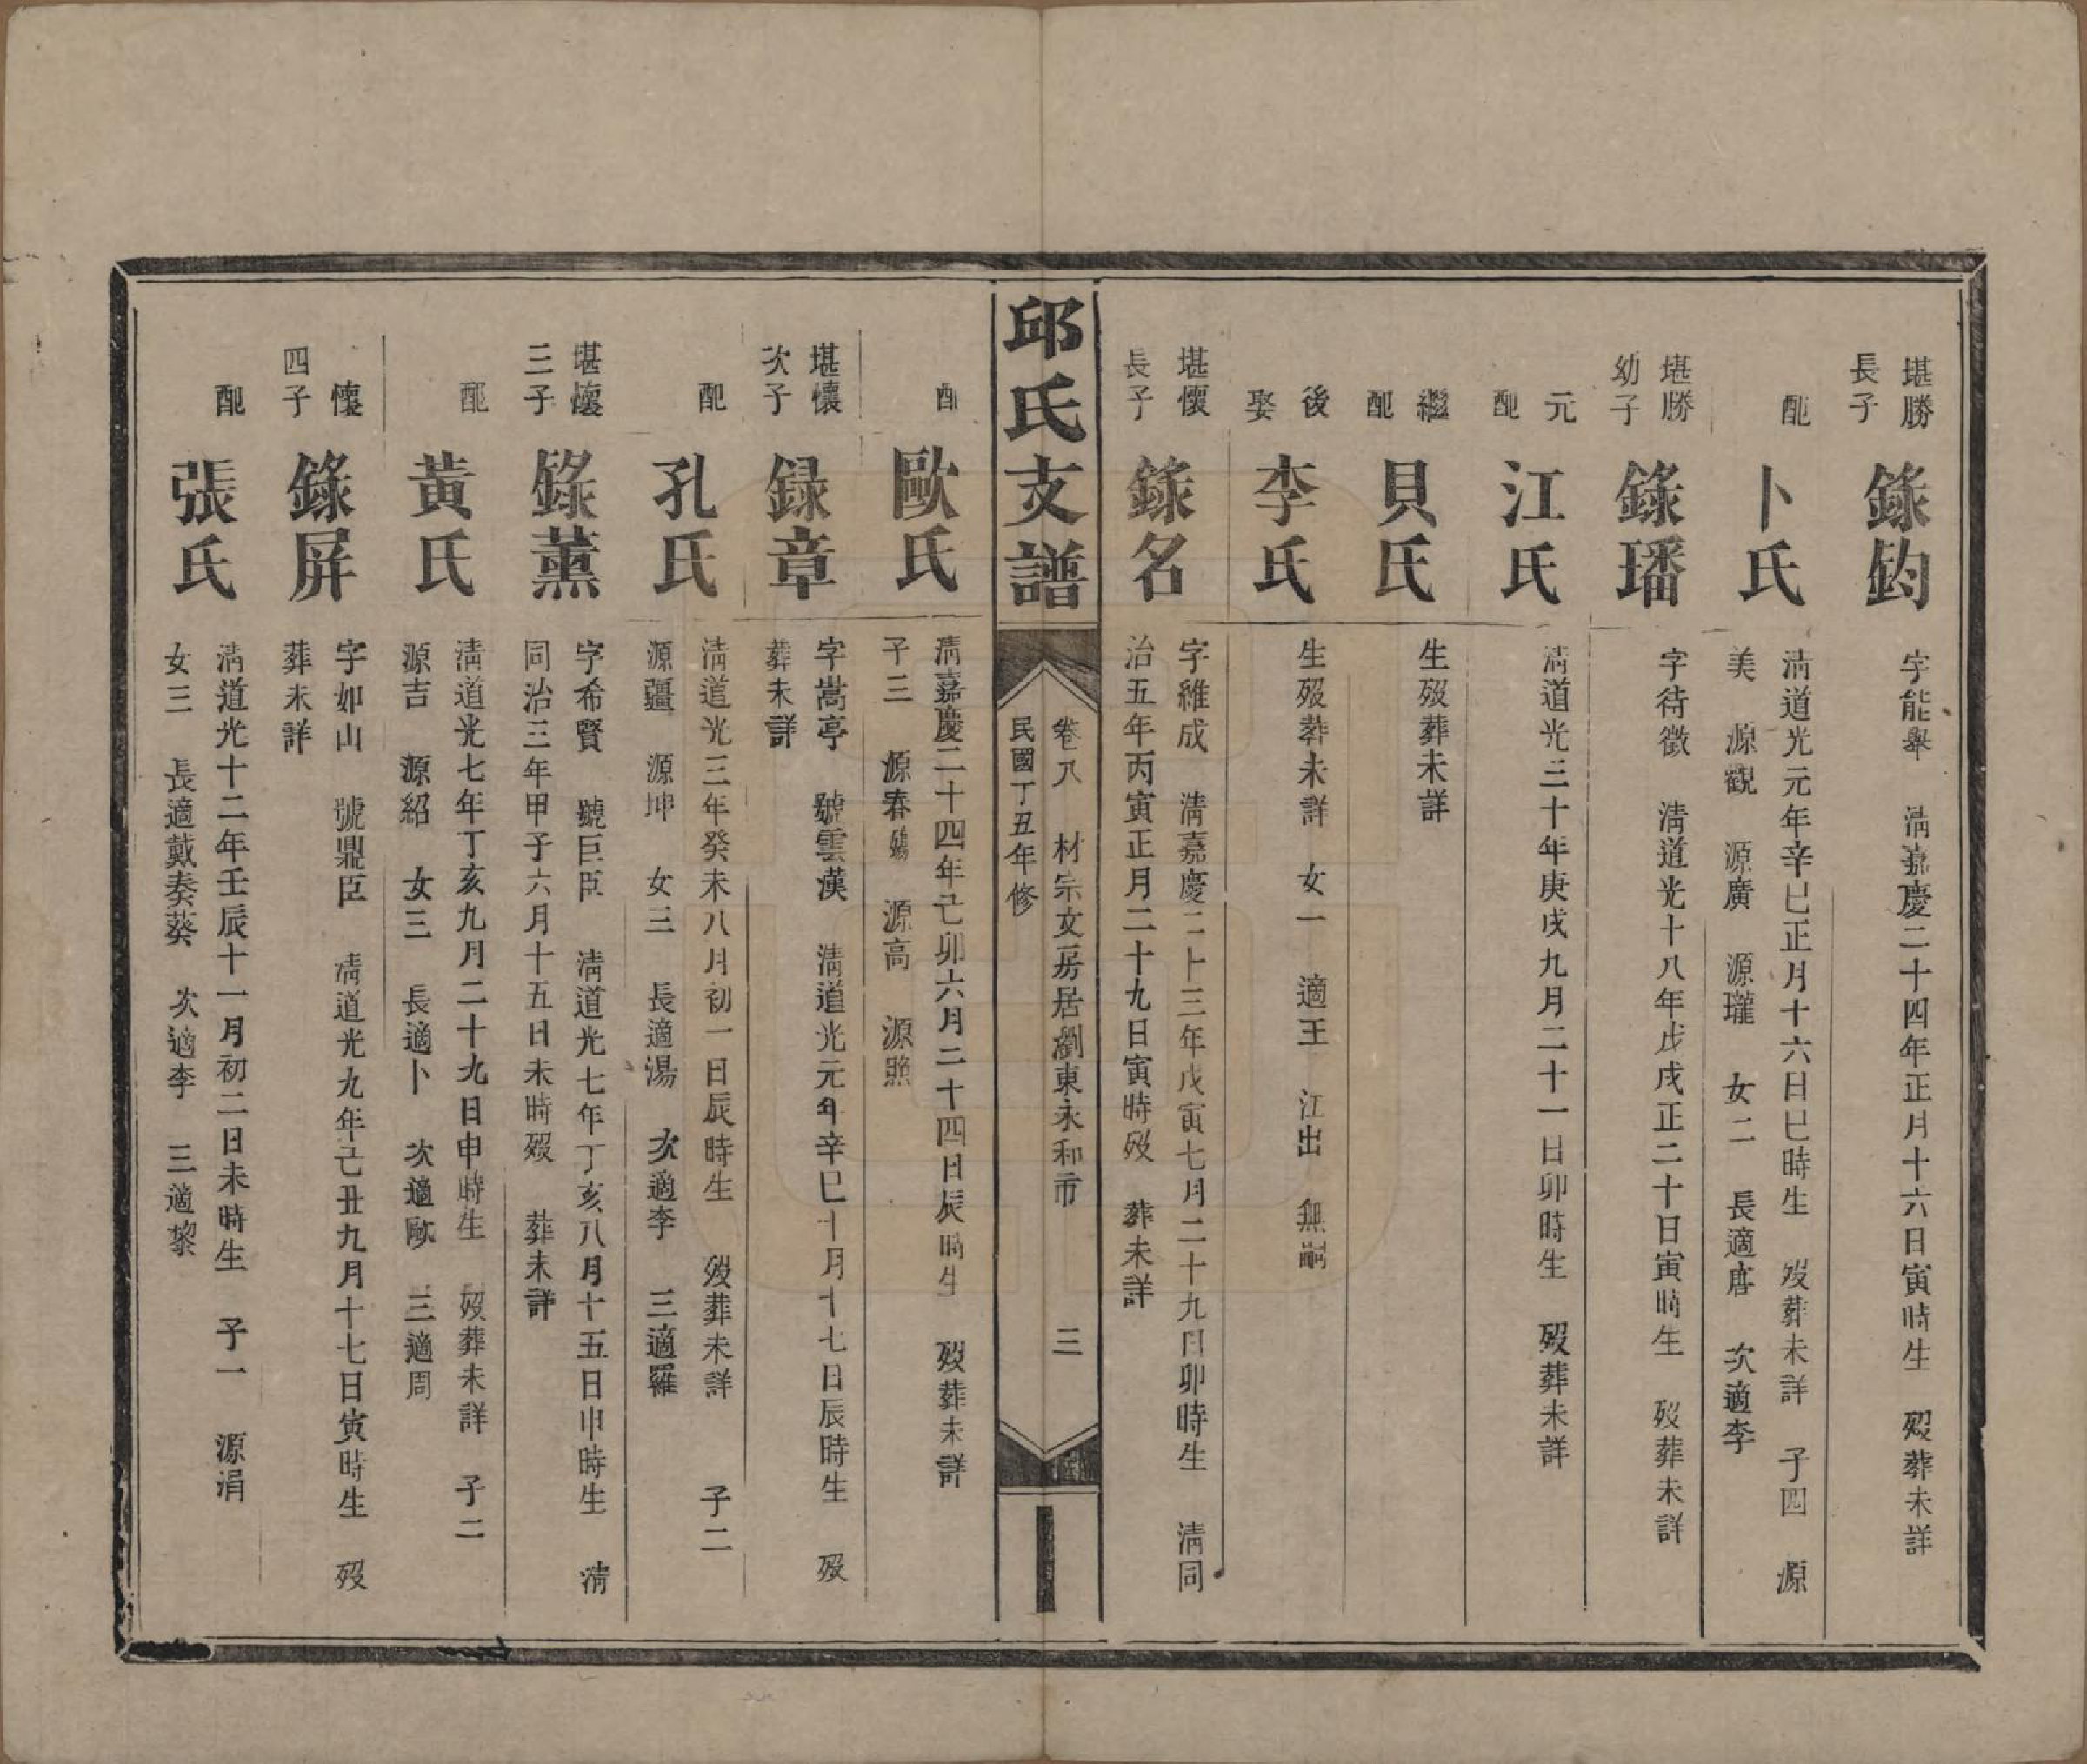 堪勝
長子
錄鈞
字能舉 淸嘉慶二十四年正月十六日寅時生 歿葬未詳
配
卜氏
淸道光元年辛巳正月十六日巳時生 歿葬未詳 子四 源
美 源觀 源廣 源瓏 女二 長適唐 次適李
堪勝
幼子
錄璠
字待徵 淸道光十八年戊戌正二十日寅時生 歿葬未詳
元
配
江氏
淸道光三十年庚戌九月二十一日卯時生 歿葬未詳
繼
配
貝氏
生歿葬未詳
後
娶
李氏
生歿葬未詳 女一 適王 江出 無嗣
堪懷
長子
錄名
字維成 淸嘉慶二十三年戊寅七月二十九日卯時生 淸同
治五年丙寅正月二十九日寅時歿 葬未詳
邱氏支譜
卷八 材宗文房居瀏東永和市 三
民國丁丑年修
配
歐氏
淸嘉慶二十四年己卯六月二十四日辰時生 歿葬未詳
子三 源春殤 源高 源照
堪懷
次子
録章
字嵩亭 號雲漢 淸道光元年辛巳十月十七日辰時生 歿
葬未詳
配
孔氏
淸道光三年癸未八月初一日辰時生 歿葬未詳 子二
源疆 源坤 女三 長適湯 次適李 三適羅
堪懷
三子
錄薰
字希賢 號巨臣 淸道光七年丁亥八月十五日申時生 淸
同治三年甲子六月十五日未時歿 葬未詳
配
黃氏
淸道光七年丁亥九月二十九日申時生 歿葬未詳 子二
源吉 源紹 女三 長適卜 次適歐 三適周
懷
四子
錄屏
字如山 號鼎臣 淸道光九年己丑九月十七日寅時生 歿
葬未詳
配
張氏
淸道光十二年壬辰十一月初二日未時生 子一 源涓
女三 長適戴奏葵 次適李 三適黎